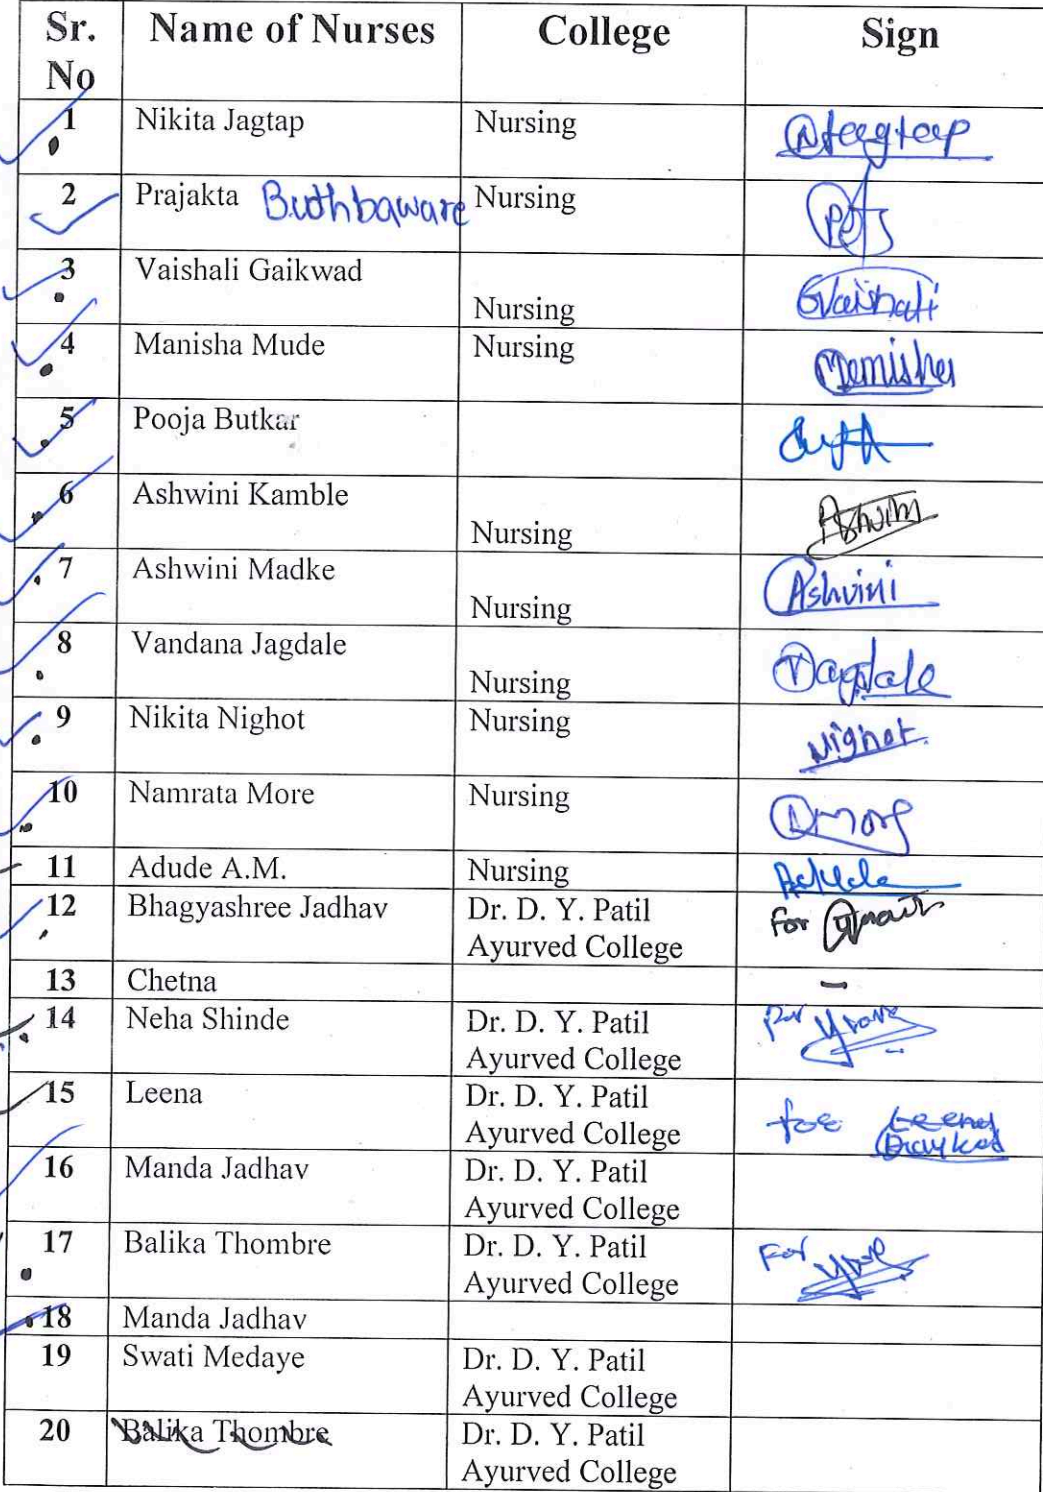 Sr. No Name of Nurses College Sign
1 Nikita Jagtap Nursing
2 Prajakta Buthbaware Nursing
3 Vaishali Gaikwad Nursing GVaishali
4 Manisha Mude Nursing
5 Pooja Butkar
6 Ashwini Kamble Nursing
7 Ashwini Madke Nursing Ashvini
8 Vandana Jagdale Nursing
9 Nikita Nighot Nursing Nighot
10 Namrata More Nursing
11 Adude A.M. Nursing
12 Bhagyashree Jadhav Dr. D. Y. Patil For
Ayurved College
13 Chetna -
14 Neha Shinde Dr. D. Y. Patil
Ayurved College
15 Leena Dr. D. Y. Patil
Ayurved College
16 Manda Jadhav Dr. D. Y. Patil
Ayurved College
17 Balika Thombre Dr. D. Y. Patil For
Ayurved College
18 Manda Jadhav
19 Swati Medaye Dr. D. Y. Patil
Ayurved College
20 Balika Thombre Dr. D. Y. Patil
Ayurved College